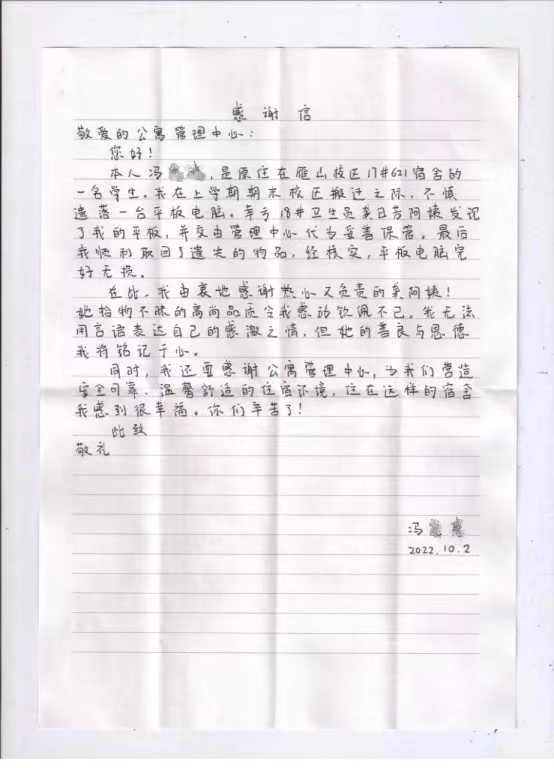 感谢信
敬爱的公寓管理中心:
您好!
本人冯，是原住在雁山校区17#621宿舍的
一名学生。我在上学期期末校区搬迁之际，不慎
遗落一台平板电脑。幸亏18#卫生员莫日芳阿姨发现
了我的平板，并交由管理中心代为妥善保管。最后
我顺利取回了遗失的物品，经核实，平板电脑完
好无损。
在此，我由衷地感谢热心又负责的莫阿姨!
她拾物不昧的高尚品质令我感动钦佩不已。我无法
用言语表达自己的感激之情，但她的善良与恩德
我将铭记于心。
同时，我还要感谢公寓管理中心，为我们营造
安全可靠、温馨舒适的住宿环境，住在这样的宿舍
我感到很幸福。你们辛苦了!
此致
敬礼
冯
2022.10.2